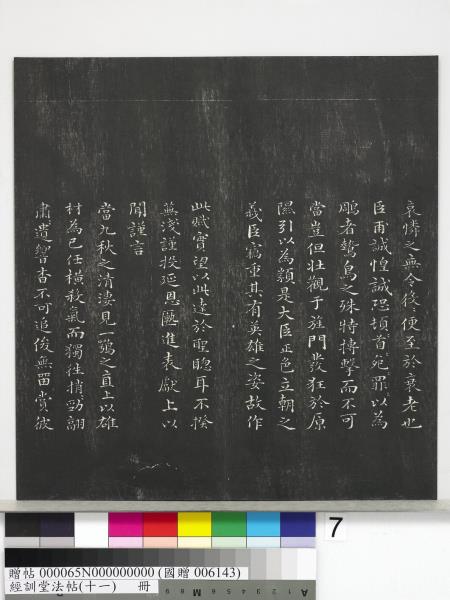 哀憐之無令役〻便至於衰老也
臣甫誠惶誠恐頓首死罪以為
鵰者鷙鳥之殊特摶擊而不可
當豈但壯觀于旌門發狂於原
隰引以為類是大臣正色立朝之
義臣竊重其有英雄之姿故作
此賦實望以此達於聖聰耳不揆
蕪淺謹投延恩匭進表獻上以
聞謹言
當九秋之清淒見一鶚之直上以雄
材為己任橫殺氣而獨往捎〻勁翮
肅〻遺響杳不可追俊無留賞彼
7
贈帖 000065N000000000 (國贈 006143)
經訓堂法帖(十一) 冊